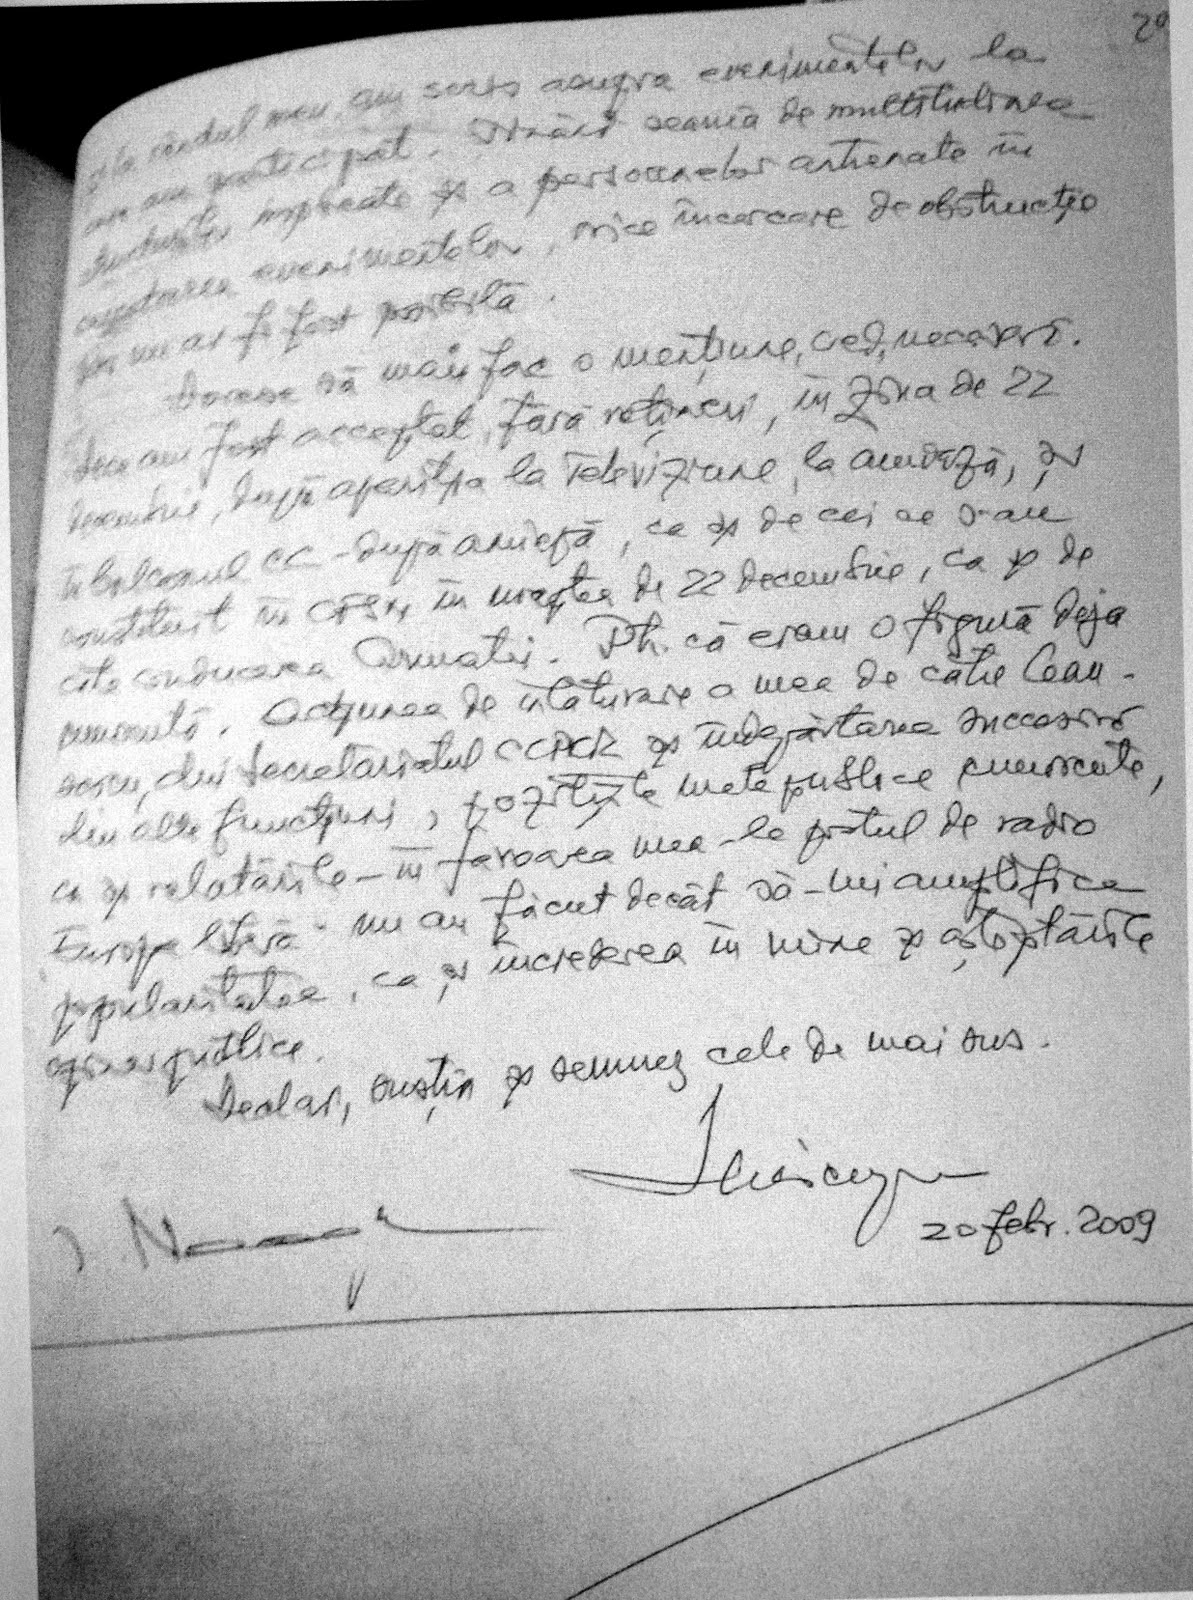 20
și la rândul meu, am scris asupra evenimentelor la
care am participat. Ținând seamă de multitudinea
implicate și a persoanelor antrenate în
evenimentelor, orice încercare de obstrucție
nu ar fi fost posibilă.
Doresc să mai fac o mențiune, cred, necesară.
am fost acceptat, fără rețineri, în ziua de 22
decembrie, după apariția la Televiziune, la amiază, și
în balconul CC - după amiază, ca și de cei ce s-au
constituit în CFSN, în noaptea de 22 decembrie, ca și de
către conducerea Armatei. Pt. că eram o figură deja
cunoscută. Acțiunea de înlăturare a mea de către Ceau-
șescu, din Secretariatul CCPCR și îndepărtarea succesivă
din alte funcțiuni, pozițiile mele publice cunoscute,
ca și relatările - în favoarea mea - la postul de radio
Europa liberă - nu au făcut decât să-mi amplifice
popularitatea, ca și încrederea în mine și așteptările
opiniei publice.
Declar, susțin și semnez cele de mai sus.
20 febr. 2009